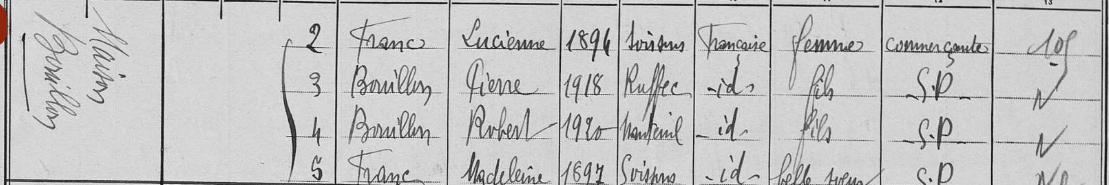 Maison
Bouillon
2 Franc Lucienne 1896 Soissons Française femme commerçante
3 Bouillon Pierre 1918 Ruffec -id- fils S.P N
4 Bouillon Robert 1920 Nanteuil -id- fils S.P N
5 Franc Madeleine 1897 Soissons -id- belle soeur S.P